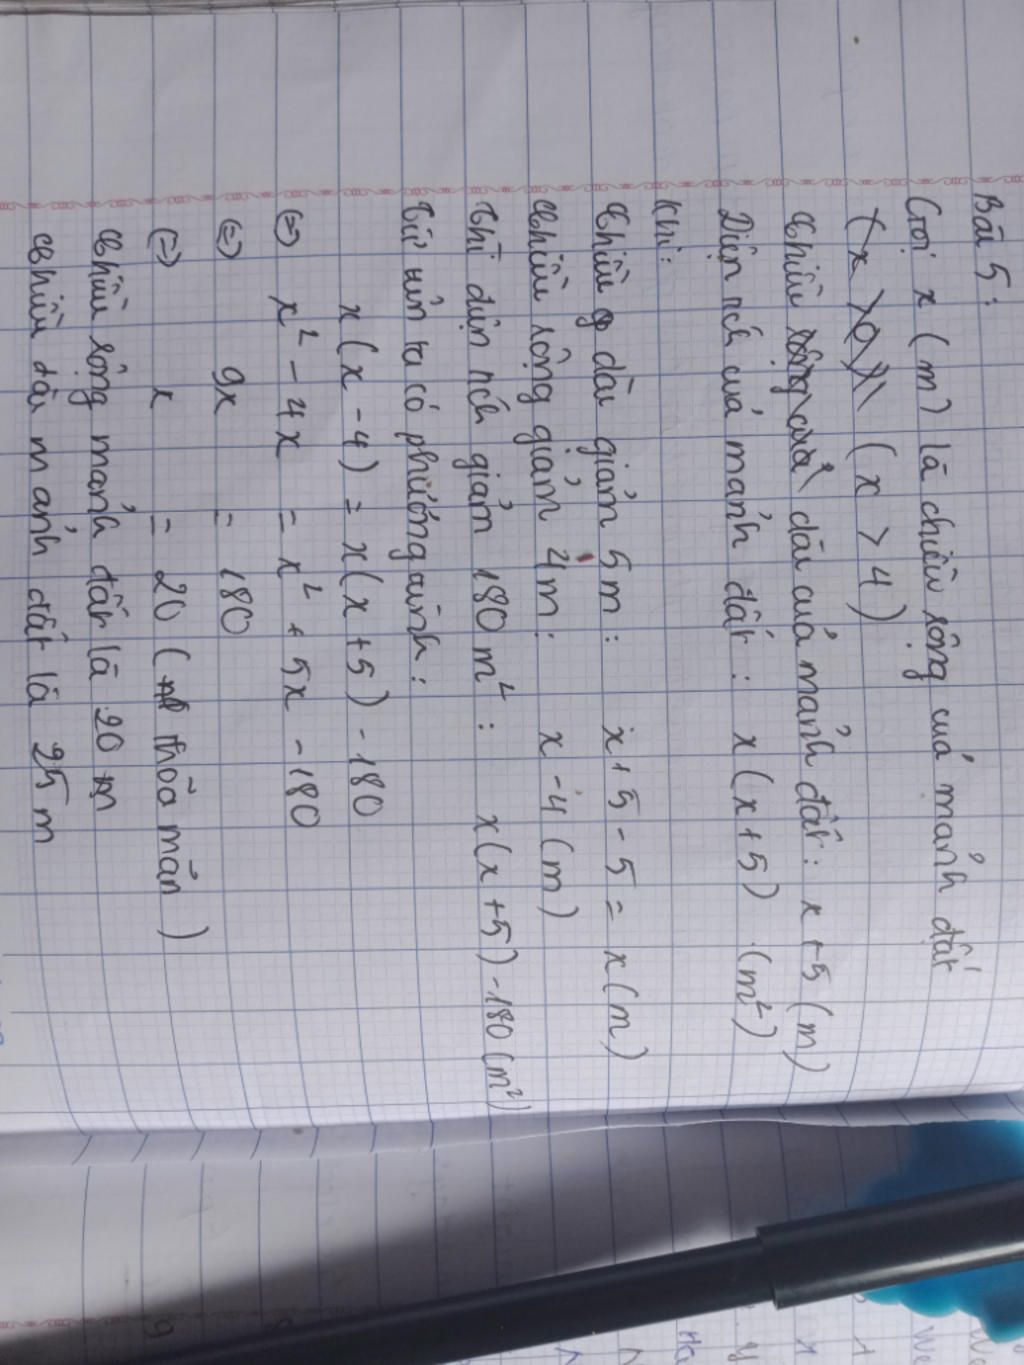 Bài 5:
Gọi x (m) là chiều rộng của mảnh đất
(x > 4)
Chiều dài của mảnh đất: x + 5 (m)
Diện tích của mảnh đất: x (x + 5) (m²)
Khi:
Chiều dài giảm 5m: x + 5 - 5 = x (m)
Chiều rộng giảm 4m: x - 4 (m)
Thì diện tích giảm 180 m²: x (x + 5) - 180 (m²)
Từ trên ta có phương trình:
x (x - 4) = x (x + 5) - 180
(=) x² - 4x = x² + 5x - 180
(=) 9x = 180
(=) x = 20 (thỏa mãn)
Chiều rộng mảnh đất là 20 m
Chiều dài mảnh đất là 25 m